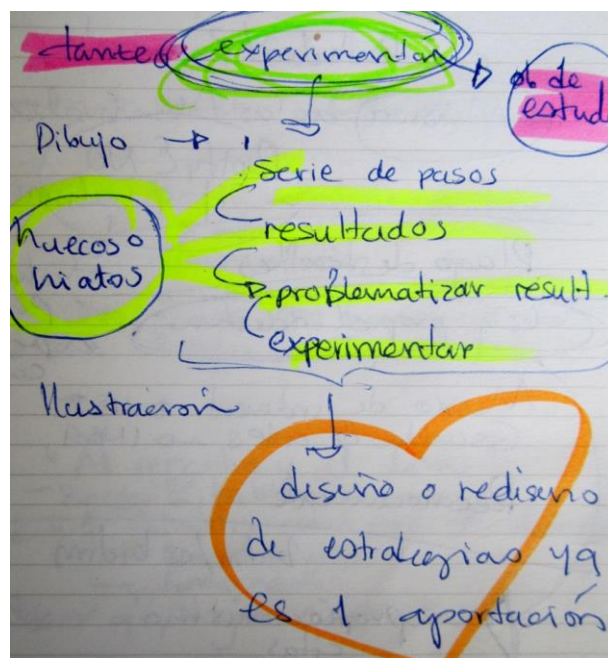 tanteo experimentar
ob de
estud
Dibujo →
Serie de pasos
huecos o
hiatos
resultados
problematizar result.
experimentar
Ilustración
diseño o rediseño
de estrategias ya
es 1 aportación